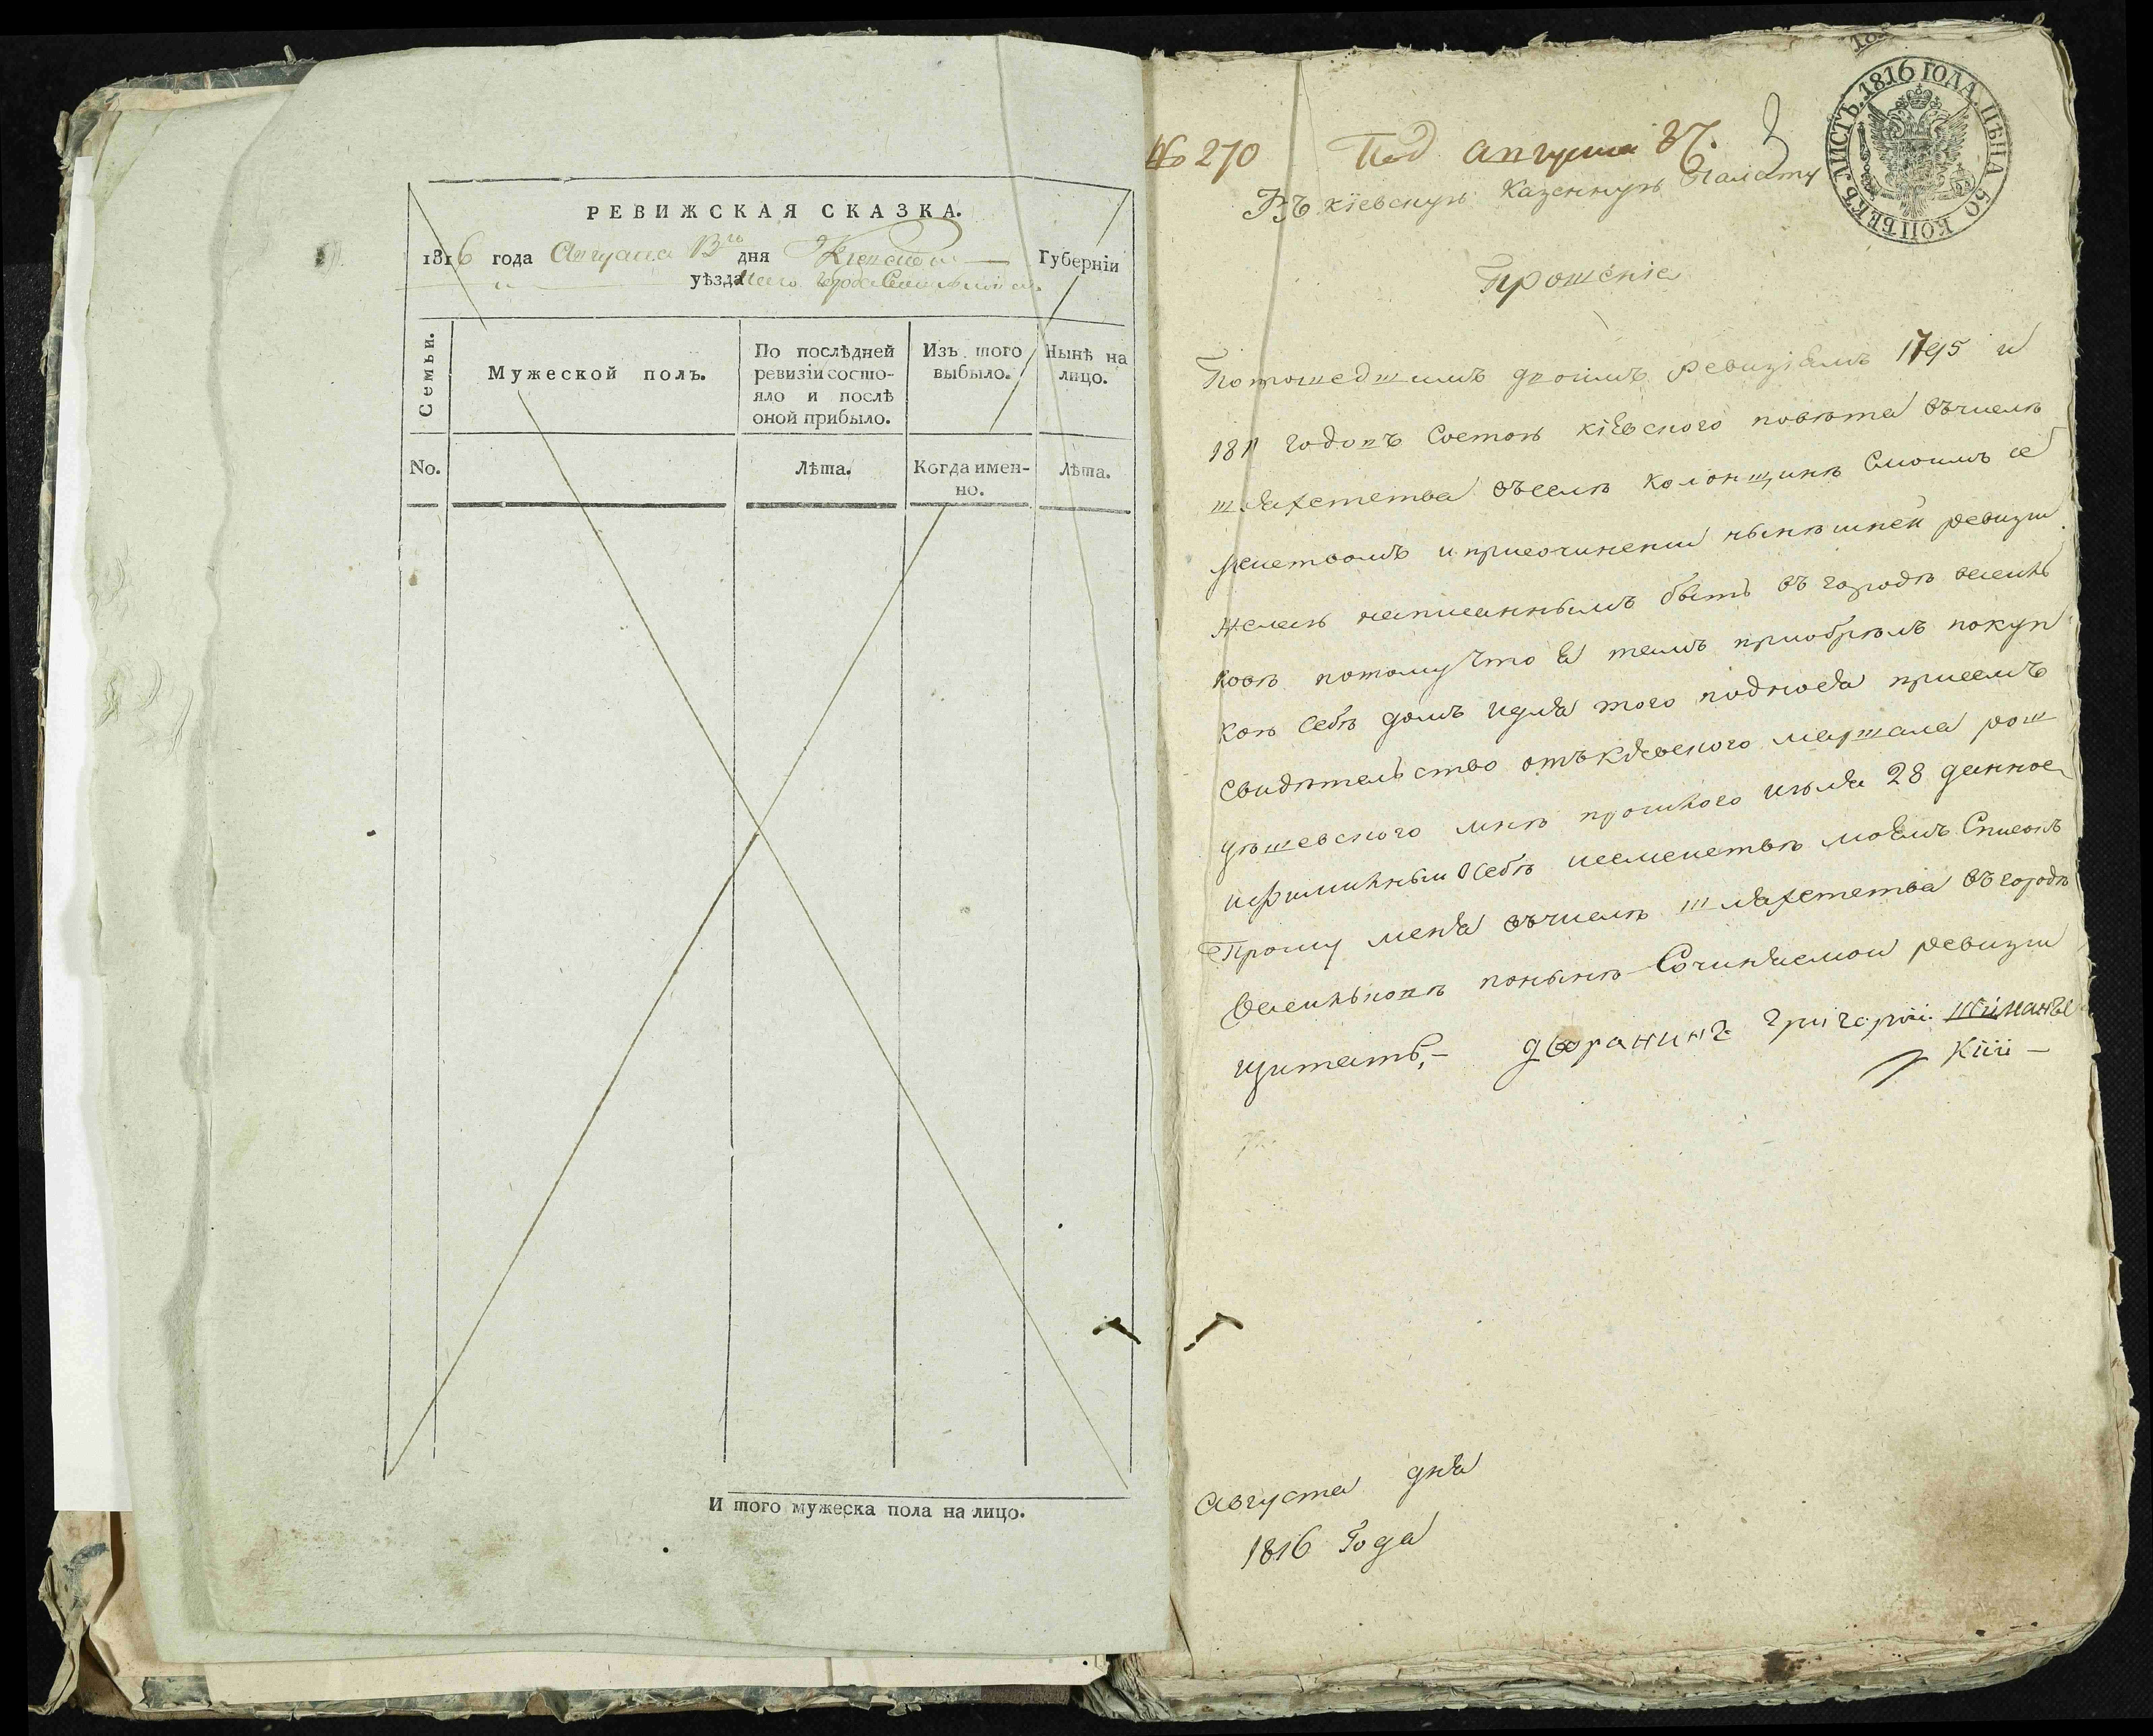 РЕВИЖСКАЯ СКАЗКА.
1816 года Августа дня Губерніи
уѣзда города
Семьи.
Мужеской полъ.
По послѣдней ревизіи состояло и послѣ оной прибыло.
Изъ того выбыло.
Нынѣ на лицо.
No.
Лѣта.
Когда именно.
Лѣта.
И того мужеска пола на лицо.
ЛИСТЪ. 1816 ГОДА. ЦѢНА 50 КОПѢЕКЪ
№ 270 Под августа
Въ кіевскую Казенную Палату
Прошеніе
По прошедшимъ двоимъ ревизіямъ 1795 и
1811 годовъ Состою кіевского повѣта въчислѣ
шляхетства въселѣ колонщинѣ Смоимъ се
мействомъ и присочинении нынѣшней ревизіи
желаю написаннымъ быть въ городѣ василь
ковѣ потому что я тамъ приобрѣлъ покуп
кою себѣ домъ идля того поднося присемъ
свидѣтельство отъкіевского маршала
мнѣ прошлого июля 28 данное
ифамилный осебѣ исемействѣ моемъ Списокъ
Прошу меня въчислѣ шляхетства въгородѣ
василковѣ понынѣ Сочиняемой ревизіи
щитать,- дворянинъ григорій
кій -
августа дня
1816 Года